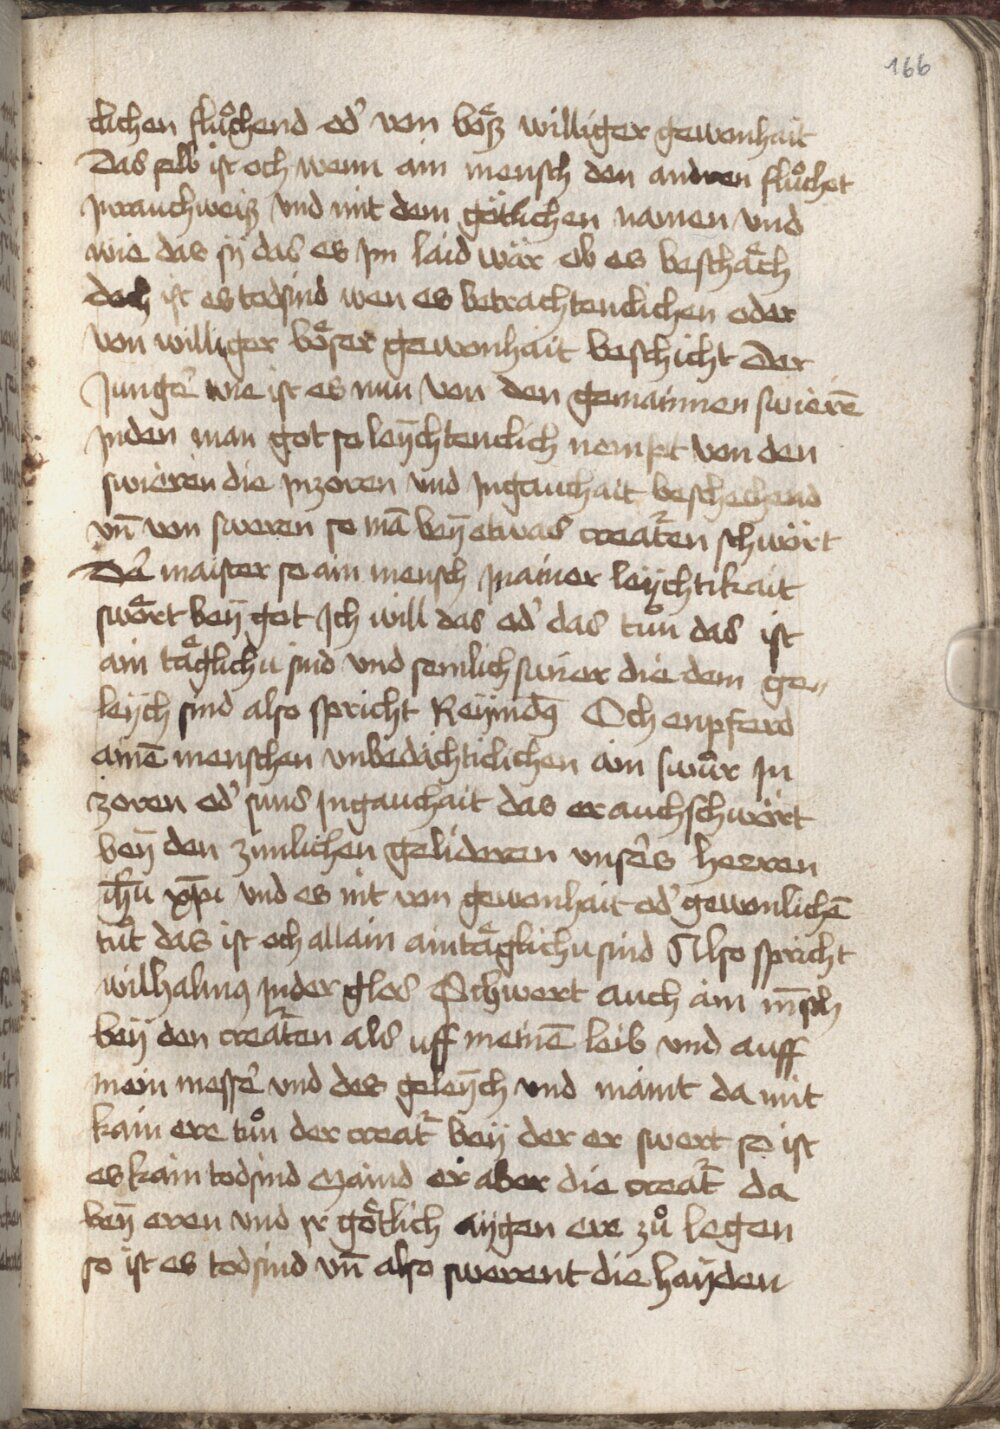 166
clichen fluͦchend od' von boͤß williger gewonhait
Das selb ist och wenn ain mensch den andren fluͦchet
Inrauchweiß vnd mit dem götlichen namen vnd
wie das sÿ das es Im laid wär ob es beschaͤch
doch ist es todsind wen es betrachtenclichen oder
von williger boͤser gewonhait beschicht Der
Junge͛ wie ist es nun von den gemainnen swierē
Inden man got so leÿchtenclich nempt von den
swieren die Inzoren vnd Ingauchait beschechend
vn̄ von sweren so mā beÿ etwas creatͬen schwört
De͛ maister so ain mensch Inainer leÿchtikait
swoͤrt beÿ got Ich will das od' das tuͦn das ist
ain taͤglichu sind vnd semlich swier die dem ge„
leÿch sind also spricht Reÿmdꝰ Och enpferd
ainē menschen vnbedächticlichen ain swuͦr In
zoren od' suns Ingauchait das er auch schwört
beÿ den zimlichen gelideren vnse͛s herren
ih̄u xp̄i vnd es nit von gewonhait od' gewonlichē
tuͦt das ist och allain ain taͤglichu sind Also spricht
wilhalmꝰ Inder glos Schwert auch ain m̄sch
beÿ den creatͬen als uff meinē leib vnd auff
mein messe͛ vnd des geleÿch vnd maint da mit
kain ere tuͦn der creatͬ beÿ der er swert so ist
es kain todsind Maind er aber die creatͬ da
beÿ eren vnd Ir goͤtlich aÿgen ere zuͦ legen
so ist es todsind vn̄ also swerent die haÿden